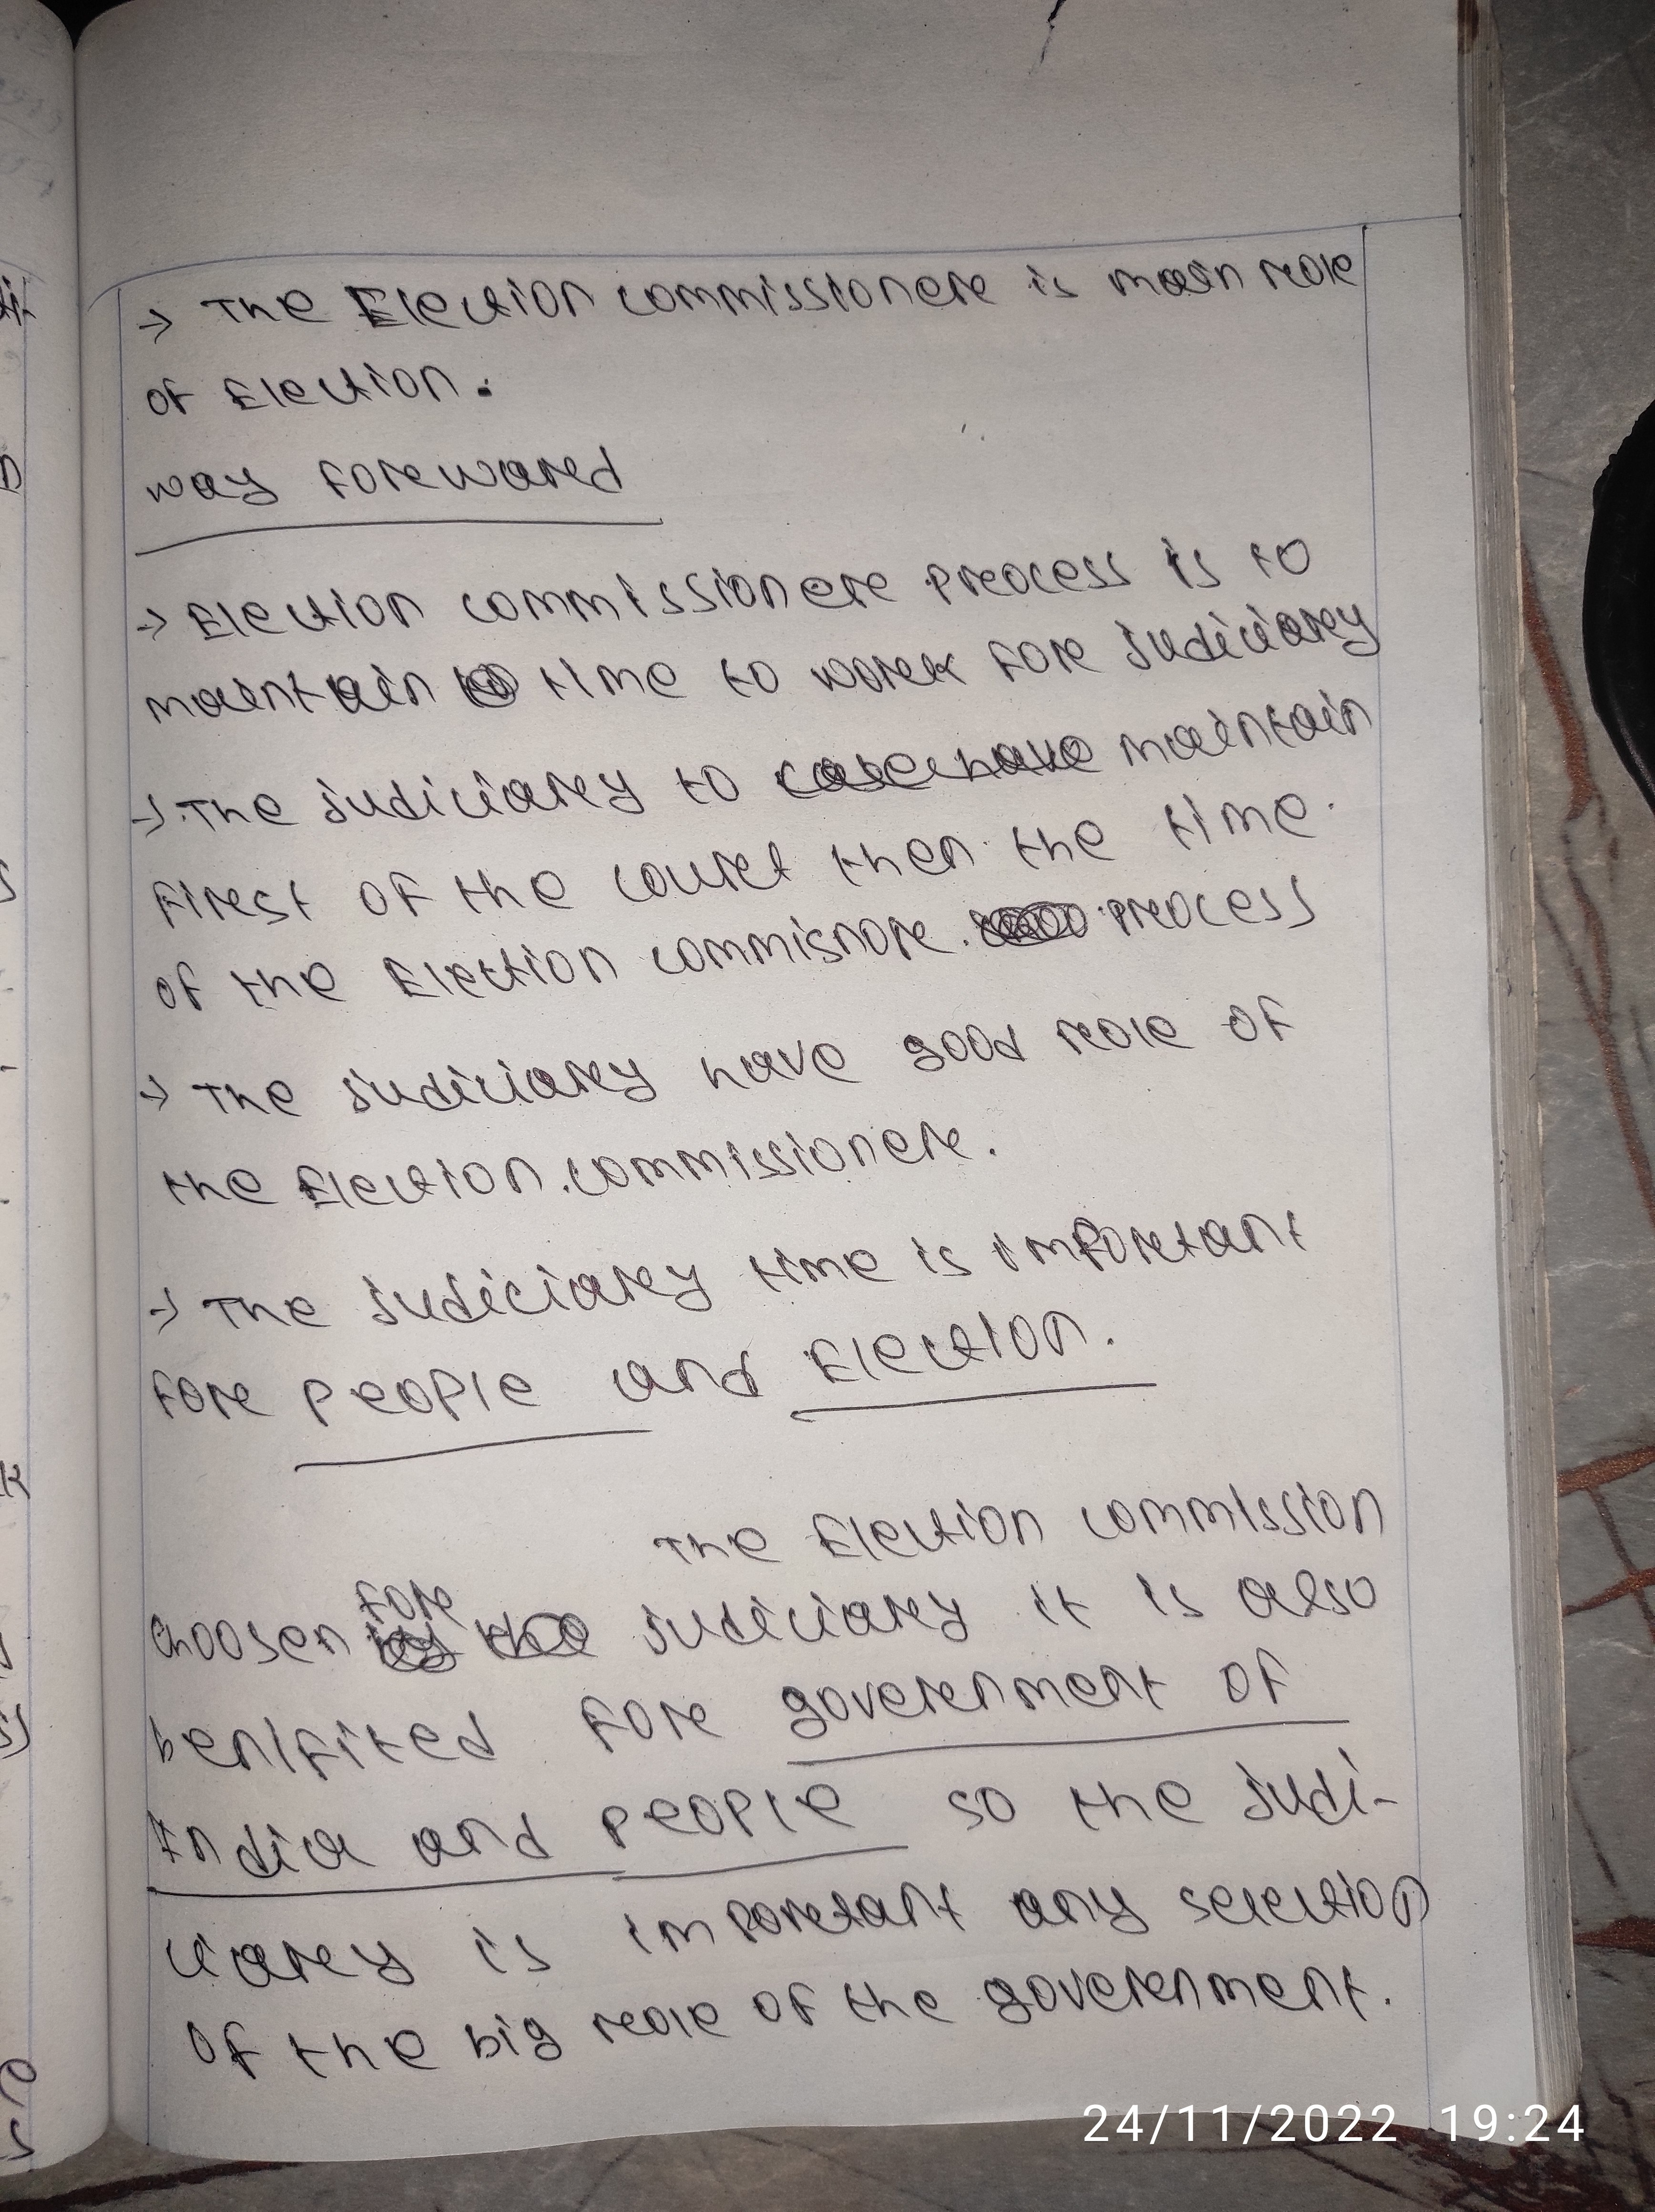 → The Election commissionere is main role
of Election.
way foreward
→ Election commissionere process is to
maintain time to work fore judiciarey
→ The judiciarey to case have maintain
first of the court then the time.
of the Election commisnore. process
→ The judiciarey have good role of
the Election commissionere.
→ The judiciarey time is important
fore people and Election.
The Election commission
fore
choosen judiciarey it is also
benifited fore goverenment of
India and people so the judi-
ciarey is important any selection
of the big role of the goverenment.
24/11/2022 19:24